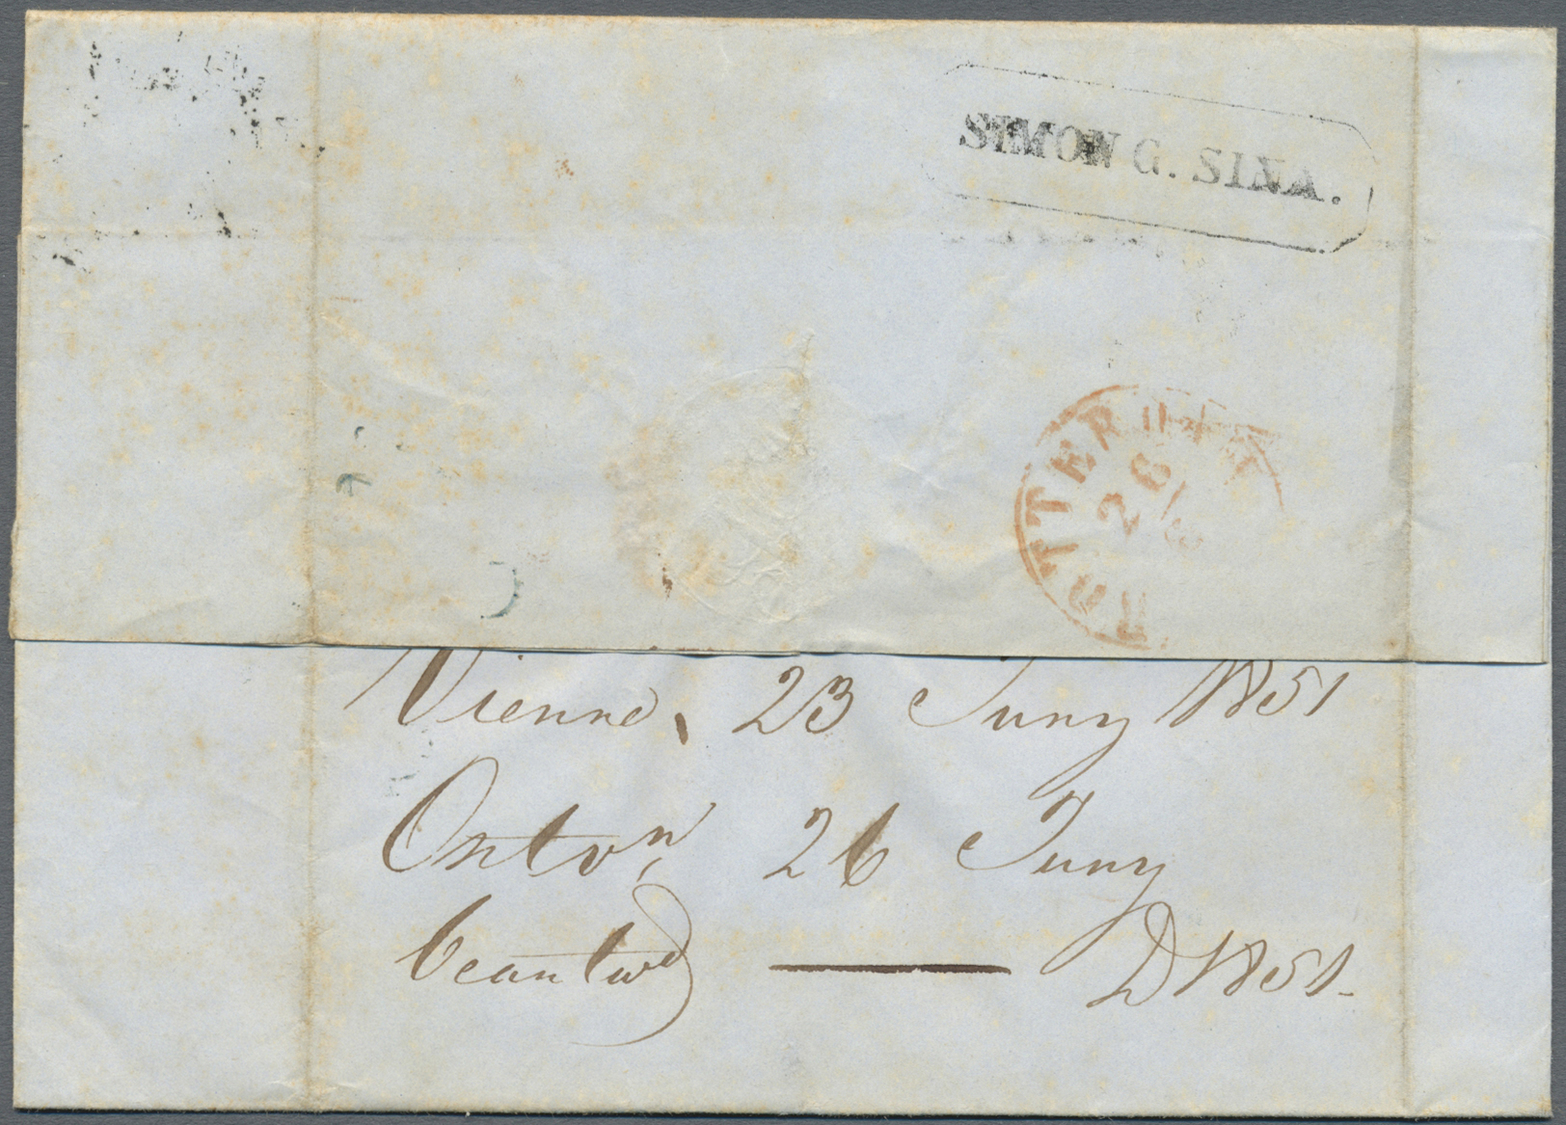 SIMON G. SINA.
ROTTERDAM
26/6
Vienne, 23 Juny 1851
Ontvn, 26 Juny
beantwd — D 1851-